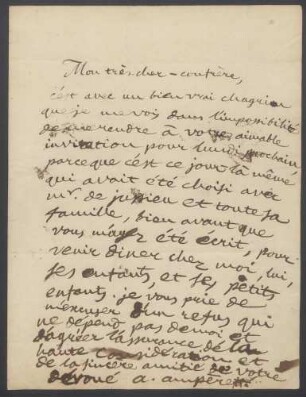 Mon très cher confrère,
c'est avec un bien vrai chagrin
que je me vois dans l'impossibilité
de me rendre à votre aimable
invitation pour lundi prochain,
parceque c'est ce jour là même
qui avait été choisi avec
mr. de jussieu et toute sa
famille, bien avant que
vous m'ayez été écrit, pour
venir diner chez moi, lui,
ses enfants, et ses petits
enfants. je vous prie de
m'excuser d'un refus qui
ne dépend pas de moi et
d'agréer l'assurance de la
haute considération et
de la sincère amitié de votre
dévoué a. ampère